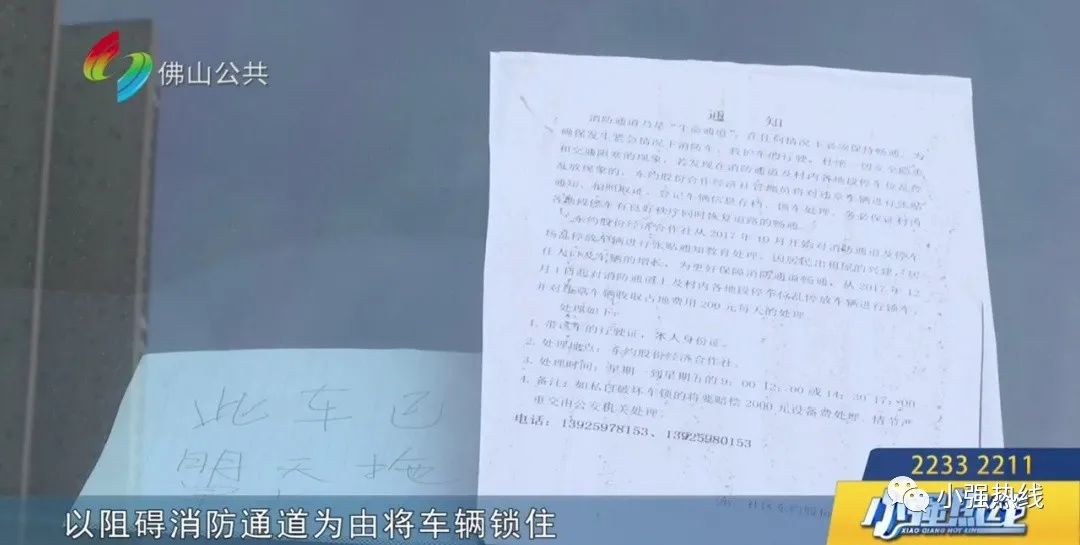 佛山公共
通 知
消防通道乃是“生命通道”，在任何情况下必须保持畅通。为
确保发生紧急情况下消防车、救护车的行驶，杜绝一切安全隐患
和交通阻塞的现象，若发现在消防通道及村内各地段停车位乱停
乱放现象的，东约股份合作经济社管理员将对违章车辆进行张贴
通知、拍照取证、登记车辆信息存档、锁车处理，务必保证村内
各地段停车有良好秩序同时恢复道路的畅通。
东约股份经济合作社从2017年10月开始对消防通道及停车
场乱停放车辆进行张贴通知教育处理，因居民出租屋的兴建，居
住人口及车辆的增长，为更好保障消防通道畅通，从2017年12
月1日起对消防通道上及村内各地段停车场乱停放车辆进行锁车，
并对违章车辆收取占地费用200元每天的处理。
处理如下：
1. 带该车的行驶证，本人身份证。
2. 处理地点：东约股份经济合作社。
3. 处理时间：星期一到星期五的9：00 12：00 或14：30 17：00
4. 备注：如私自破坏车锁的将要赔偿2000元设备费处理，情节严
重交由公安机关处理。
电话：13925978153、13925980153
社区东约股份
此车已
明天拖
2233 2211
小强热线
小强热线
XIAO QIANG HOT LINE
以阻碍消防通道为由将车辆锁住